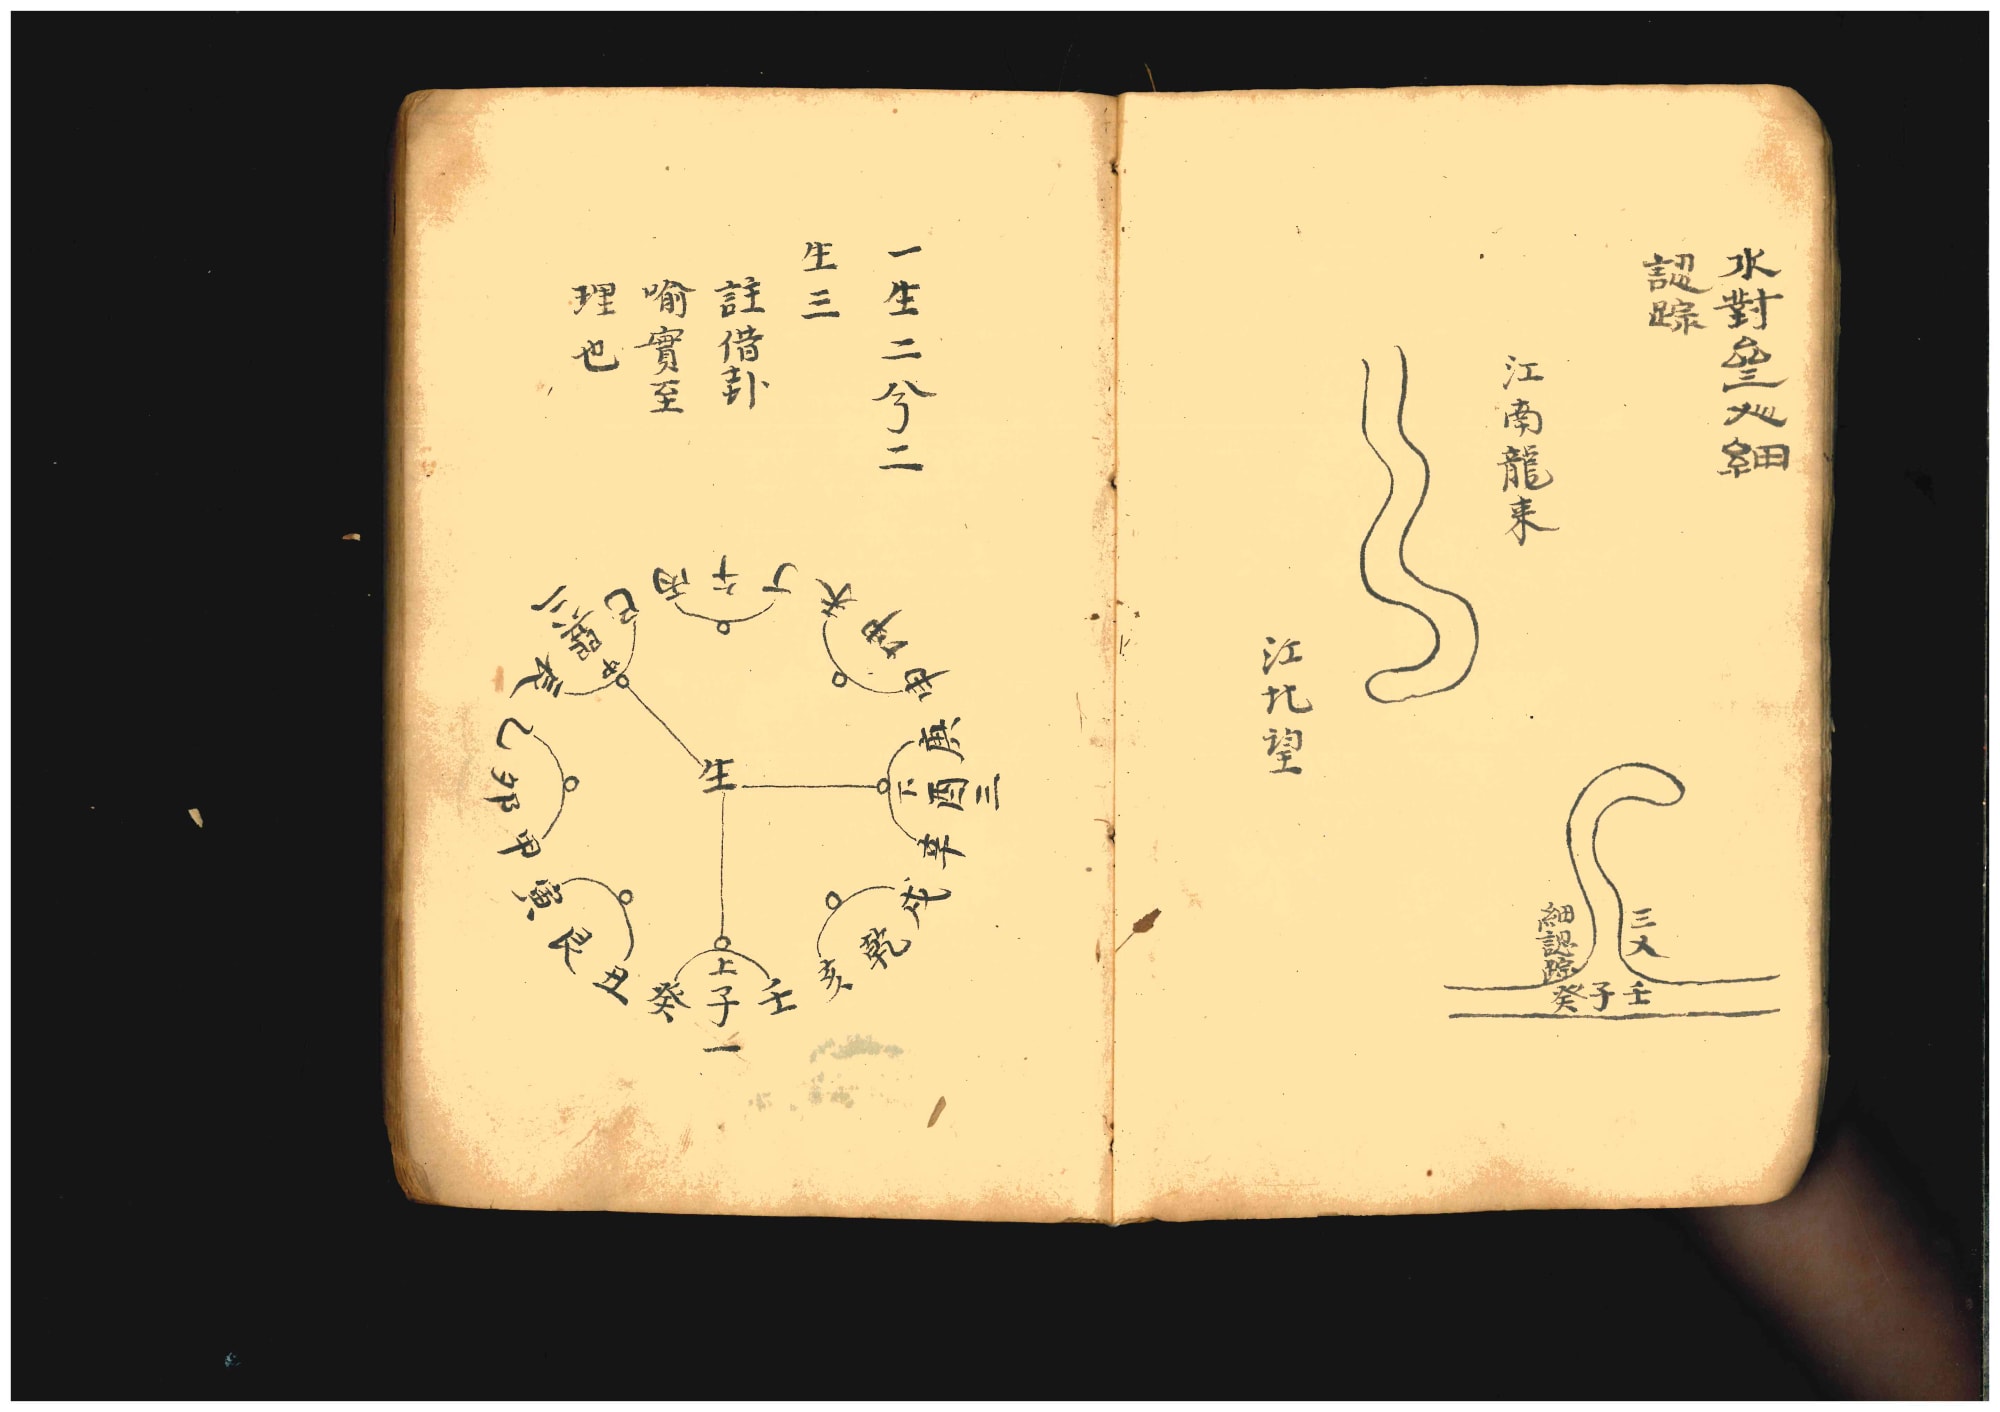 水對叄叉細
認踪
江南龍来
江北望
三叉
細認踪
壬子癸
一生二兮二
生三
註借卦
喻實至
理也
生
上子一
壬
癸
丑
艮
寅
甲
卯
乙
辰
巽二
中
巳
丙
午
丁
未
坤
申
庚
下酉三
辛
戌
乾
亥